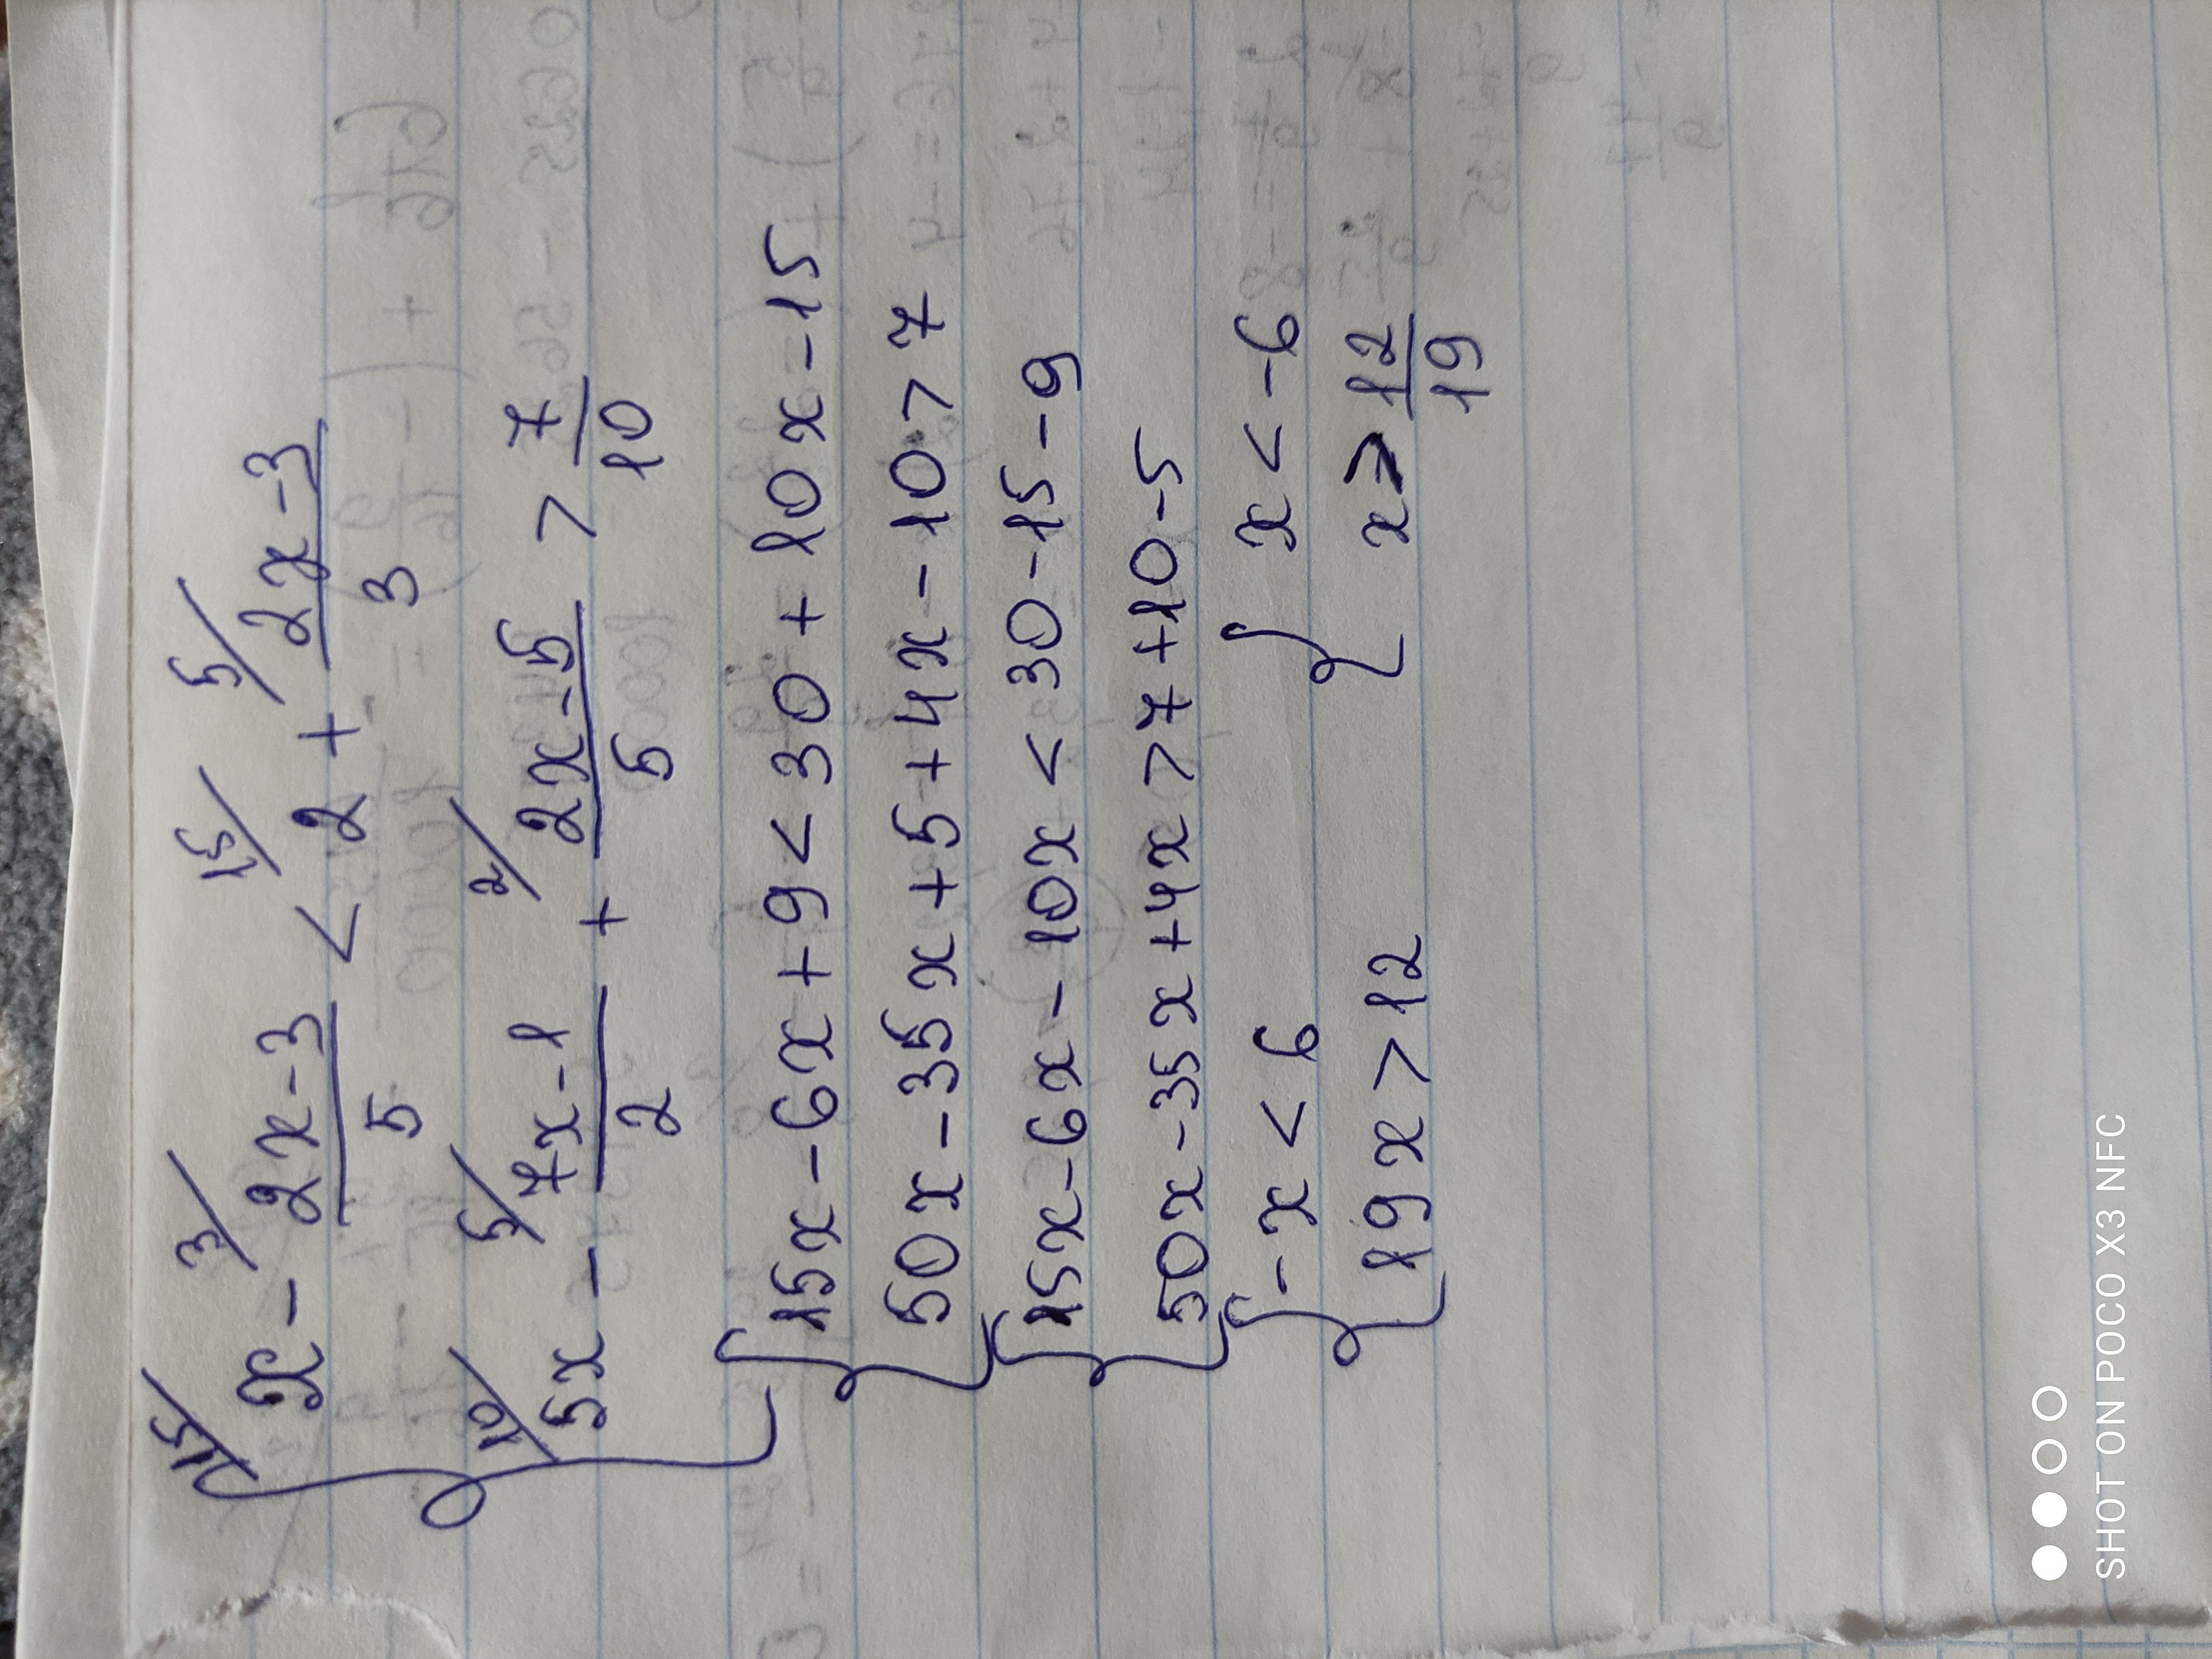 15/ 3/ 15/ 5/
x - (2x-3)/5 < 2 + (2x-3)/3
10/ 5/ 2/
5x - (7x-1)/2 + (2x-5)/5 > 7/10
15x-6x+9<30+10x-15
50x-35x+5+4x-10>7
15x-6x-10x<30-15-9
50x-35x+4x>7+10-5
-x<6 x<-6
19x>12 x>12/19
SHOT ON POCO X3 NFC